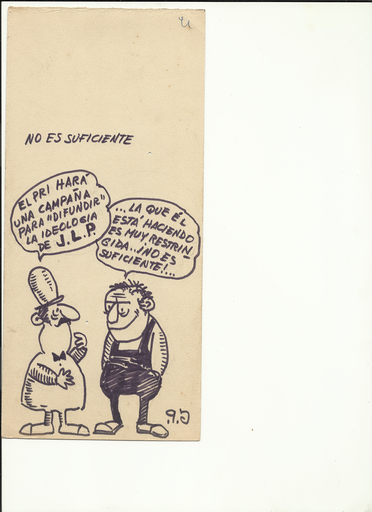 NO ES SUFICIENTE
EL PRI HARÁ
UNA CAMPAÑA
PARA "DIFUNDIR"
LA IDEOLOGIA
DE J.L.P.
...LA QUE ÉL
ESTÁ HACIENDO
ES MUY RESTRIN
GIDA...¡NO ES
SUFICIENTE!...